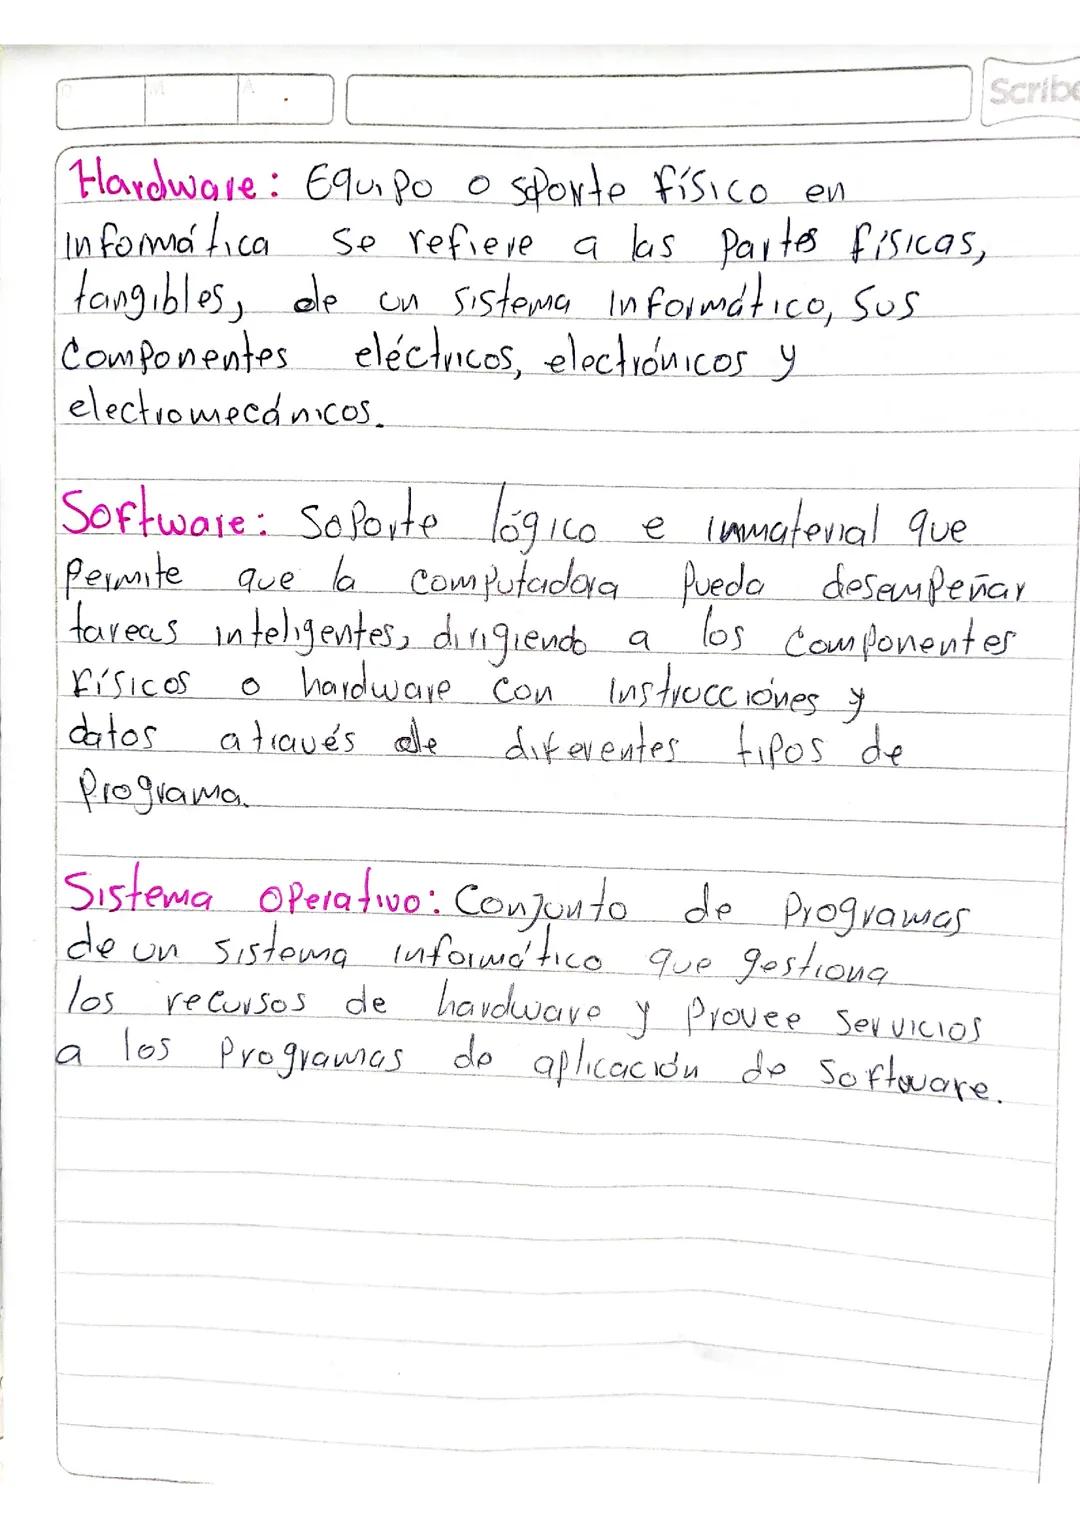 D M A
Scribe
Hardware: Equipo o soporte físico en
informática se refiere a las partes físicas,
tangibles, de un sistema informático, sus
componentes eléctricos, electrónicos y
electromecánicos.
Software: Soporte lógico e inmaterial que
permite que la computadora pueda desempeñar
tareas inteligentes, dirigiendo a los componentes
físicos o hardware con instrucciónes y
datos através de diferentes tipos de
programa.
Sistema operativo: Conjunto de programas
de un sistema informático que gestiona
los recursos de hardware y provee servicios
a los programas de aplicación de software.